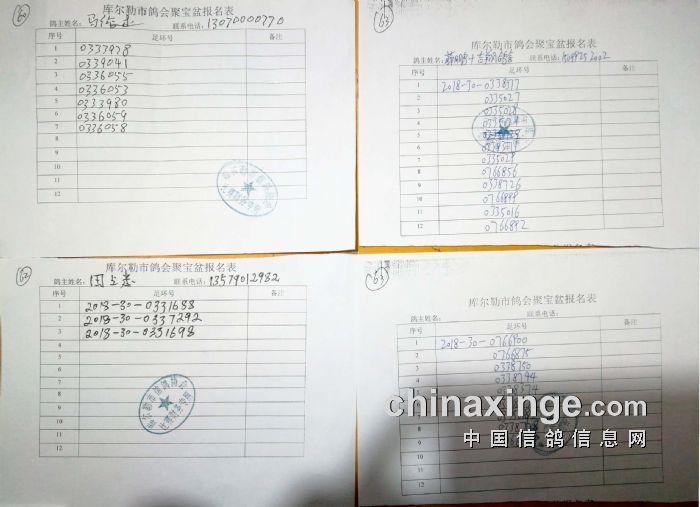 60
库尔勒市鸽会聚宝盆报名表
鸽主姓名: 联系电话: 13070000770
序号 足环号 备注
1 0333978
2 0339041
3 0336055
4 0336053
5 0333980
6 0336059
7 0336058
8
9
10
11
12
63
库尔勒市鸽会聚宝盆报名表
鸽主姓名: 联系电话:
序号 足环号 备注
1 2018-30-0338577
2 0335027
3 0335028
4
5
6
7 0335029
8 0766856
9 0338726
10 0766899
11 0335016
12 0766892
62
库尔勒市鸽会聚宝盆报名表
鸽主姓名: 联系电话: 13579012982
序号 足环号 备注
1 2018-30-0331688
2 2018-30-0337292
3 2018-30-0331698
4
5
6
7
8
9
10
11
12
63
库尔勒市鸽会聚宝盆报名表
鸽主姓名: 联系电话:
序号 足环号 备注
1 2018-30-0766900
2 0766875
3 0338750
4 0338794
5
8
9
10
11
12
chinaxinge.com
中国信鸽信息网